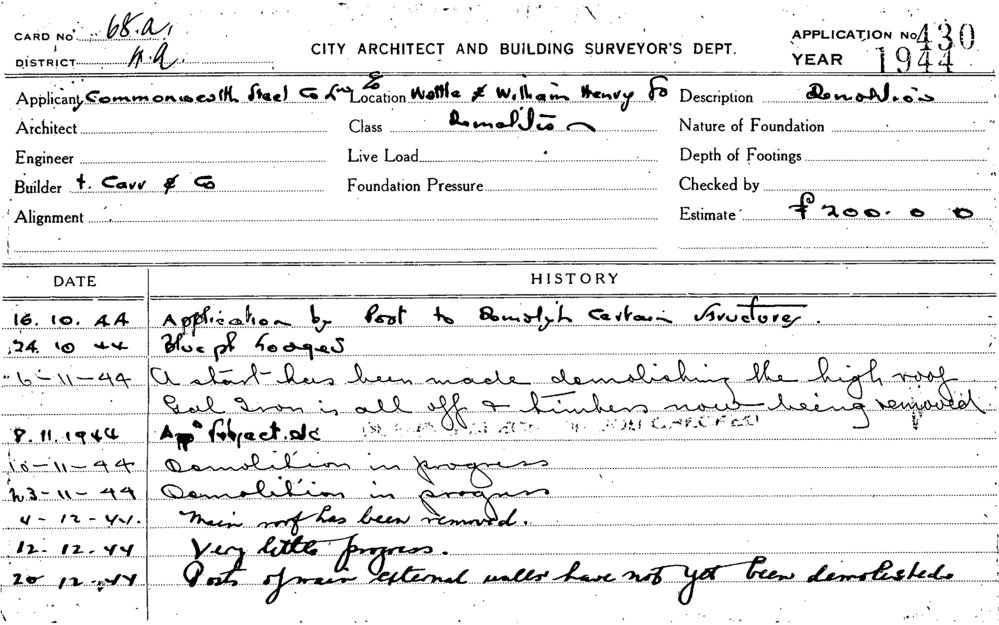 CARD No 68.a.
DISTRICT
CITY ARCHITECT AND BUILDING SURVEYOR'S DEPT.
APPLICATION No 430
YEAR 1944
Applicant Commonwealth Steel Co Location Wattle & William Henry St Description Demolition
Architect Class Demolition Nature of Foundation
Engineer Live Load Depth of Footings
Builder Carr & Co Foundation Pressure Checked by
Alignment Estimate £200. 0 0
DATE HISTORY
16. 10. 44 Application by Post to Demolish Certain Structures.
24. 10 44 Blue ph lodged
6-11-44 A start has been made demolishing the high roof
Gal Iron is all off & timbers now being removed
8. 11. 1944 Appn Subject. etc
10-11-44 Demolition in progress
23-11-44 Demolition in progress
4-12-44. Main roof has been removed.
12. 12. 44 Very little progress.
20 12. 44 of main external walls have not yet been demolished.